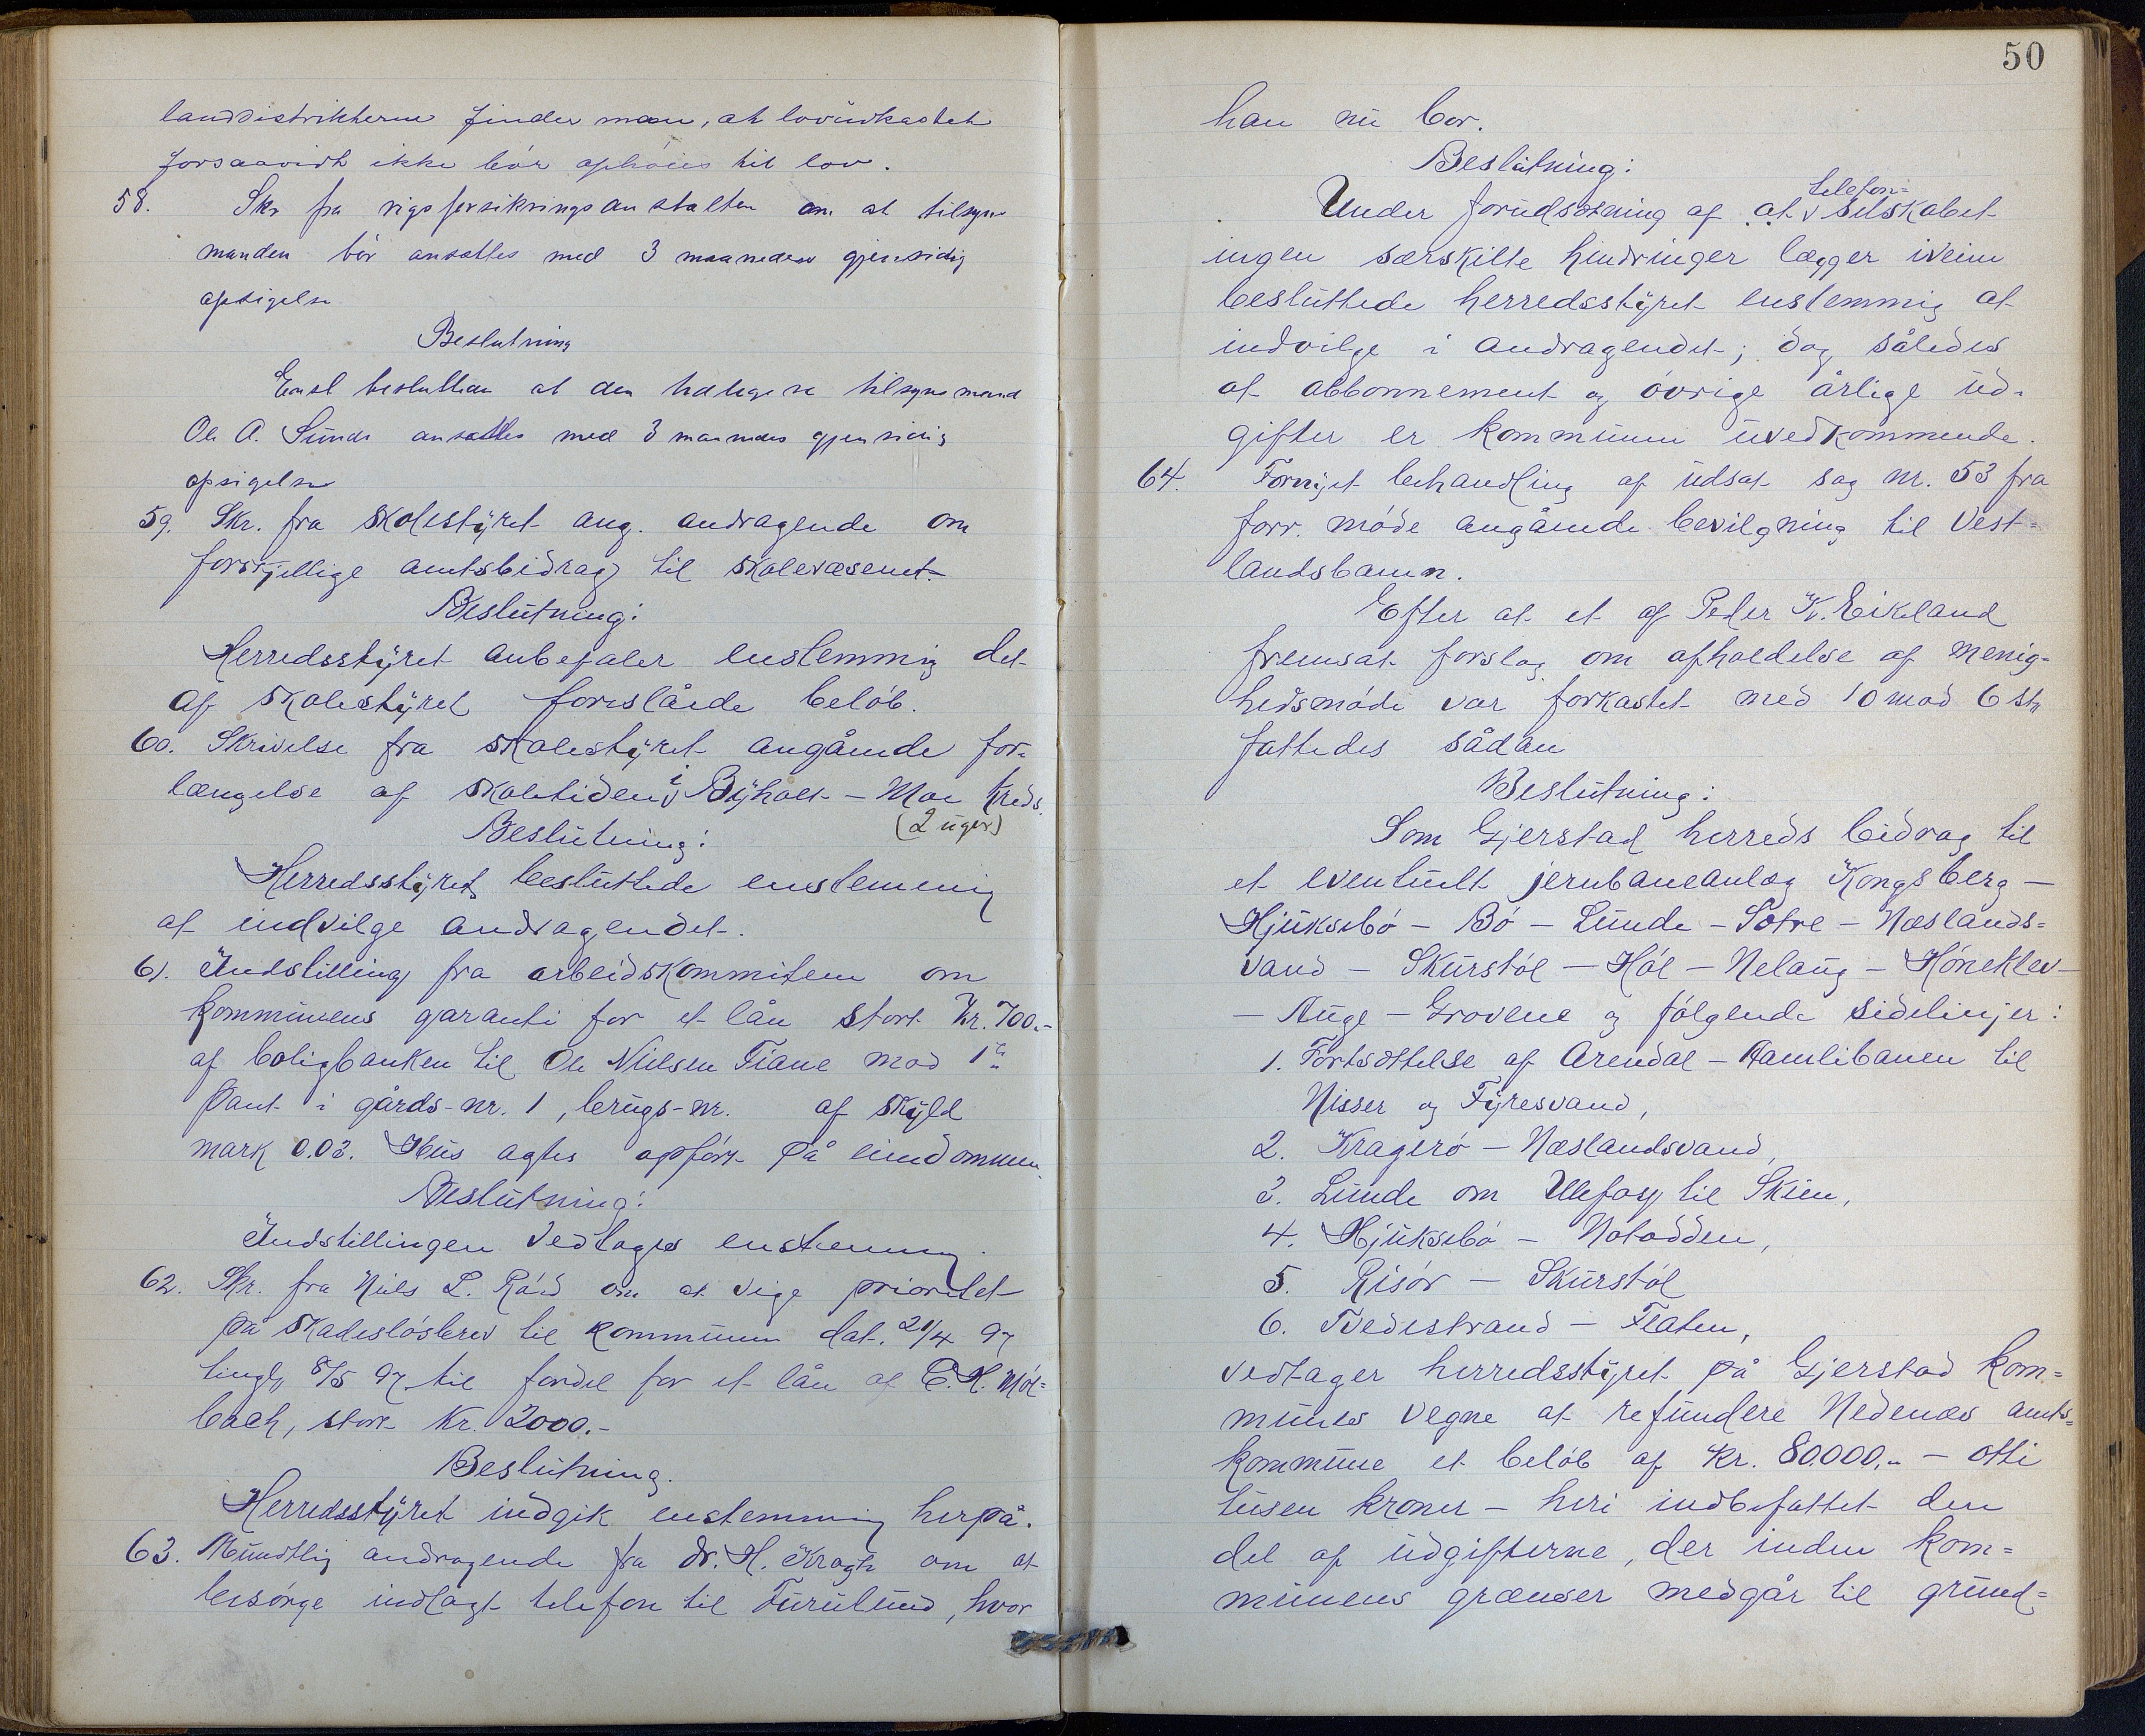 landdistrikterne finder man, at lovudkastet
forsaavidt ikke bör ophöies til lov.
58. Skr fra rigsforsikringsanstalten om at tilsyns
manden bör ansættes med 3 maaneders gjensidig
opsigelse
Beslutning
Enst besluttedes at den hidtidige tilsynsmand
Ole A. Sunde ansættes med 3 maaneders gjensidig
opsigelse
59. Skr. fra skolestyret ang. andragende om
forskjellige amtsbidrag til skolevæsenet.
Beslutning:
Herredsstyret anbefaler enstemmig det
af skolestyret foreslåede belöb.
60. Skrivelse fra skolestyret angående for-
længelse af skoletiden i Byholt - Moe kreds.
(2 uger)
Beslutning:
Herredsstyret besluttede enstemmig
at indvilge andragendet.
61. Indstilling fra arbeidskommiteen om
kommunens garanti for et lån stort Kr. 700.-
af boligbanken til Ole Nielsen Fiane mod 1ste
pant i gårds-nr. 1, brugs-nr. af skyld
mark 0.03. Hus agtes opfört på eiendommen.
Beslutning:
Indstillingen vedtoges enstemmig.
62. Skr. fra Niels L. Röd om at vige prioritet
på skadeslösbrev til kommunen dat. 21/4 97
tingl, 8/5 97 til fordel for et lån af C. H. Möl=
bach, stort Kr. 2000.-
Beslutning.
Herredsstyret indgik enstemmig herpå.
63. Mundtlig andragende fra dr. H. Kragh om at
besörge indlagt telefon til Furulund, hvor
50
han nu bor.
Beslutning:
telefon=
Under forudsætning af at selskabet
ingen særskilte hindringer lægger iveien
besluttede herredsstyret enstemmig at
indvilge i andragendet; dog således
at abbonnement og övrige årlige ud-
gifter er kommunen uvedkommende.
64. Fornyet behandling af udsat sag nr. 53 fra
forr. möde angående bevilgning til Vest=
landsbanen.
Efter at et af Peder K. Eikeland
fremsat forslag om afholdelse af menig=
hedsmöde var forkastet med 10 mod 6 st,
fattedes sådan
Beslutning:
Som Gjerstad herreds bidrag til
et eventuelt jernbaneanlæg Kongsberg -
Hjuksebö - Bö - Lunde - Solve - Næslands=
vand - Skurstöl - Höl - Nelaug - Höneklev -
- Auge - Grovene og fölgende sidelinjer:
1. Fortsættelse af Arendal - Aamlibanen til
Nisser og Fyresvand,
2. Kragerö - Næslandsvand,
3. Lunde om Ulefoss til Skien,
4. Hjuksebö - Notodden,
5. Risör - Skurstöl
6. Tvedestrand - Flaten,
vedtager herredsstyret på Gjerstad kom=
munes vegne at refundere Nedenes amts=
kommune et belöb af Kr. 80.000,- - otti
tusen kroner - heri indbefattet den
del af udgifterne, der inden kom=
munens grænser medgår til grund=